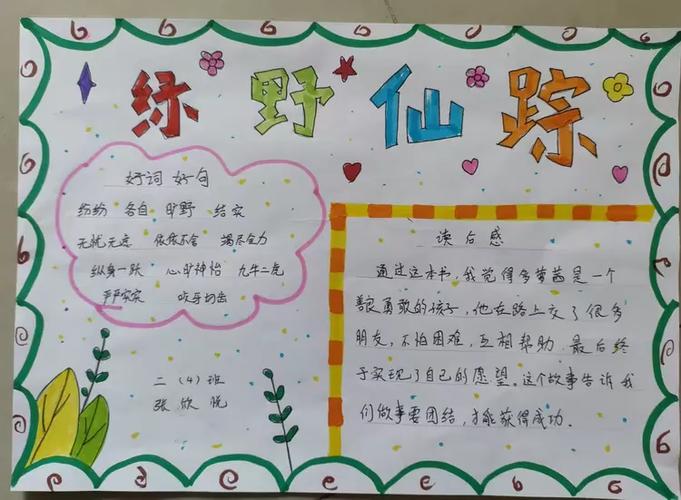 绿野仙踪
好词 好句
纷纷 各自 旷野 结实
无忧无虑 依依不舍 竭尽全力
纵身一跃 心旷神怡 九牛二虎
严严实实 咬牙切齿
二（4）班
张欣悦
读后感
通过这本书，我觉得多萝茜是一个
善良勇敢的孩子，他在路上交了很多
朋友，不怕困难，互相帮助，最后终
于实现了自己的愿望。这个故事告诉我
们做事要团结，才能获得成功。